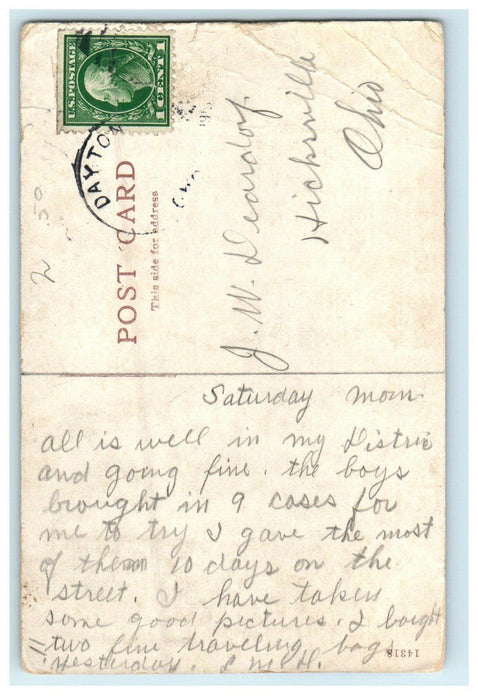 U.S.POSTAGE
1 CENT 1
DAYTON
POST CARD
This side for address
J. W. Deardof
Hicksville
Ohio
2 50
Saturday morn
all is well in my Distric
and going fine. the boys
brought in 9 cases for
me to try I gave the most
of them 10 days on the
street. I have taken
some good pictures. I bought
two fine traveling bag
yesterday.
14318